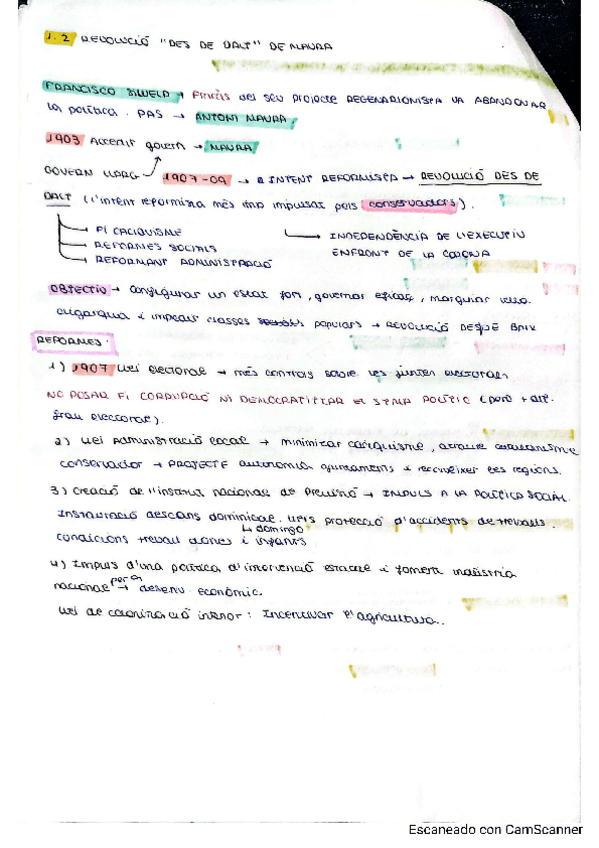 1.2 REVOLUCIÓ "DES DE DALT" DE MAURA
FRANCISCO SILVELA → Fracàs del seu projecte REGENERACIONISTA VA ABANDONAR
la política. PAS → ANTONI MAURA.
1903 Accedir govern → MAURA
GOVERN LLARG 1907-09 → INTENT REFORMISTA → REVOLUCIÓ DES DE
DALT (l'intent reformista més imp impulsat pels conservadors).
FI CACIQUISME
REFORMES SOCIALS
REFORMANT ADMINISTRACIÓ
INDEPENDÈNCIA DE L'EXECUTIU
ENFRONT DE LA CORONA
OBJECTIU → Configurar un estat fort, governar eficaç, marginar vella
oligarquia i impedir classes populars → REVOLUCIÓ DESDE BAIX
REFORMES:
1) 1907 Llei electoral → més controls sobre les juntes electorals
NO POSAR FI CORRUPCIÓ NI DEMOCRATITZAR EL STMA POLÍTIC (però + dif.
frau electoral).
2) Llei Administració local → minimitzar caciquisme, atraure catalanisme
conservador → PROJECTE autonomia ajuntaments i reconèixer les regions.
3) Creació de l'institut nacional de Previsió → IMPULS A LA POLÍTICA SOCIAL
Instauració descans dominical. Lleis protecció d'accidents de treballs.
↳ domingo
condicions treball dones i infants
4) Impuls d'una política d'intervenció estatal i foment indústria
nacional → per a desenv. econòmic.
Llei de colonització interior: Incentivar l'agricultura.
Escaneado con CamScanner